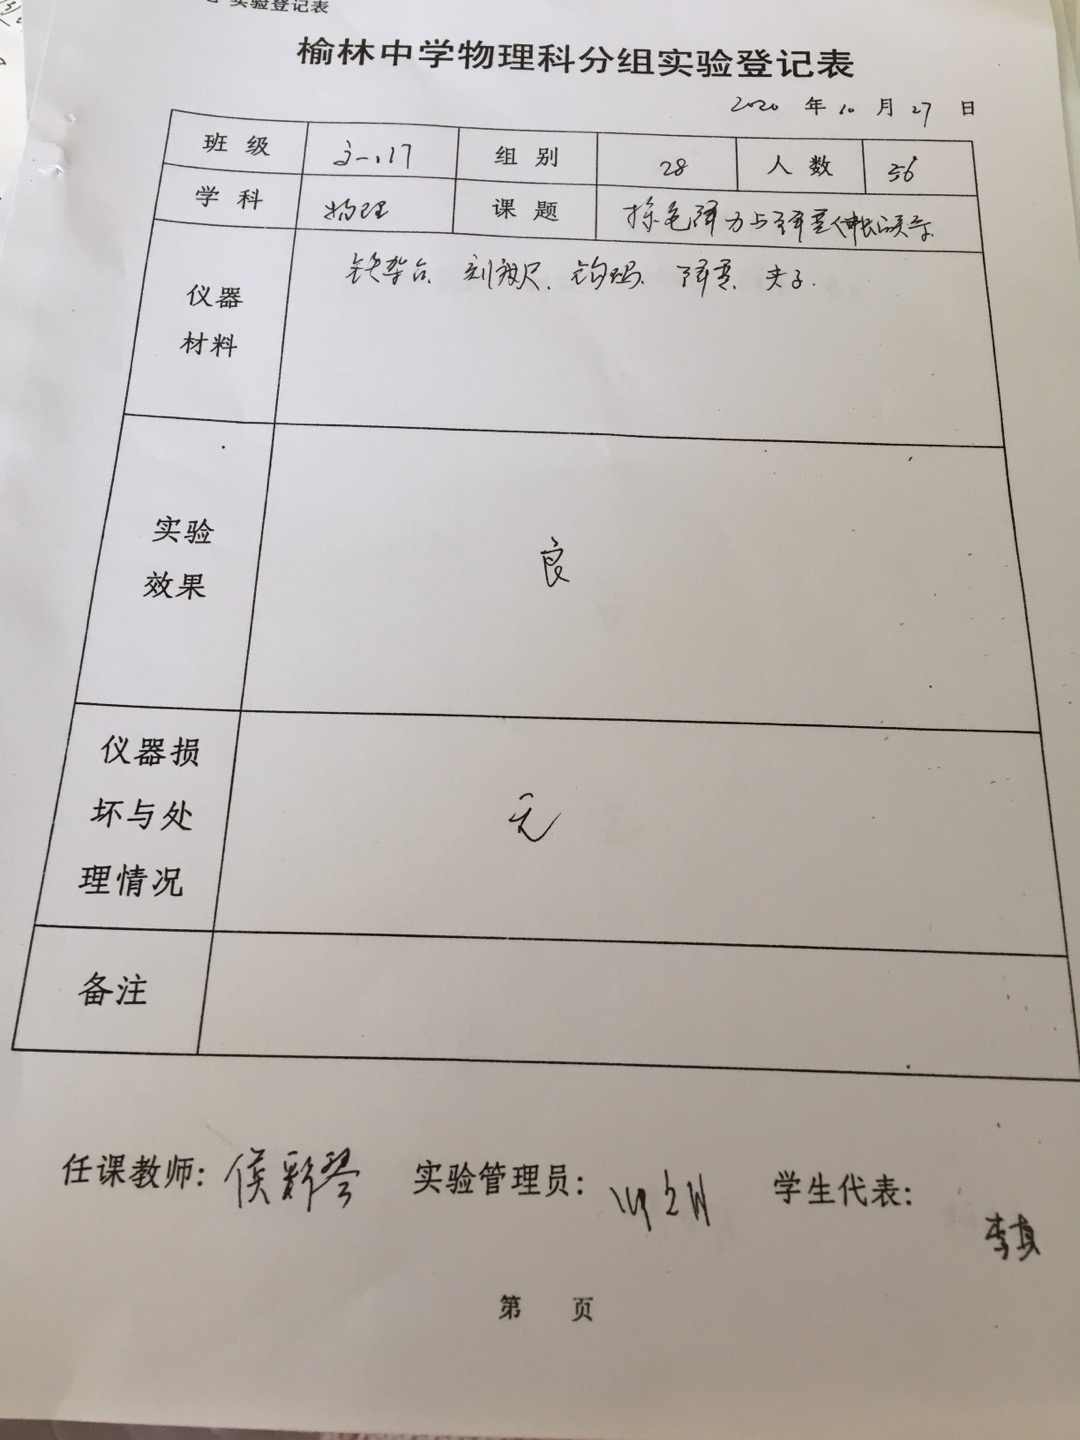 实验登记表
榆林中学物理科分组实验登记表
2020 年 10 月 27 日
班 级 高一.17 组 别 28 人 数 56
学 科 物理 课 题 探究弹力与弹簧伸长的关系
仪器
材料
铁架台、刻度尺、钩码、弹簧、夹子.
实验
效果
良
仪器损
坏与处
理情况
无
备注
任课教师: 侯彩琴 实验管理员: 学生代表: 李真
第 页